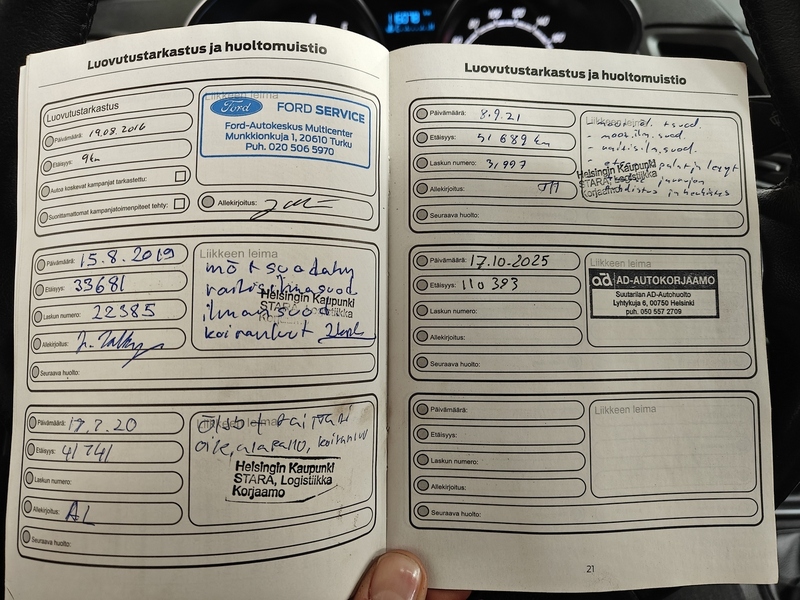 Luovutustarkastus ja huoltomuistio
Luovutustarkastus
Päivämäärä: 19.08.2016
Etäisyys: 9km
Autoa koskevat kampanjat tarkastettu:
Suorittamattomat kampanjatoimenpiteet tehty:
Liikkeen leima
Ford FORD SERVICE
Ford-Autokeskus Multicenter
Munkkionkuja 1, 20610 Turku
Puh. 020 506 5970
Allekirjoitus:
Päivämäärä: 15.8.2019
Etäisyys: 33681
Laskun numero: 22385
Allekirjoitus:
Seuraava huolto:
Liikkeen leima
Helsingin Kaupunki
STARA, Logistiikka
Päivämäärä: 17.7.20
Etäisyys: 41741
Laskun numero:
Allekirjoitus: AL
Seuraava huolto:
Liikkeen leima
Helsingin Kaupunki
STARA, Logistiikka
Korjaamo
Luovutustarkastus ja huoltomuistio
Päivämäärä: 8.9.21
Etäisyys: 51689 km
Laskun numero: 31997
Allekirjoitus:
Seuraava huolto:
Liikkeen leima
Helsingin Kaupunki
STARA, Logistiikka
Korjaamo
Päivämäärä: 17.10.2025
Etäisyys: 110393
Laskun numero:
Allekirjoitus:
Seuraava huolto:
Liikkeen leima
ad AD-AUTOKORJAAMO
Suutarilan AD-Autohuolto
Lyhtykuja 6, 00750 Helsinki
puh. 050 557 2709
Päivämäärä:
Etäisyys:
Laskun numero:
Allekirjoitus:
Seuraava huolto:
Liikkeen leima
21